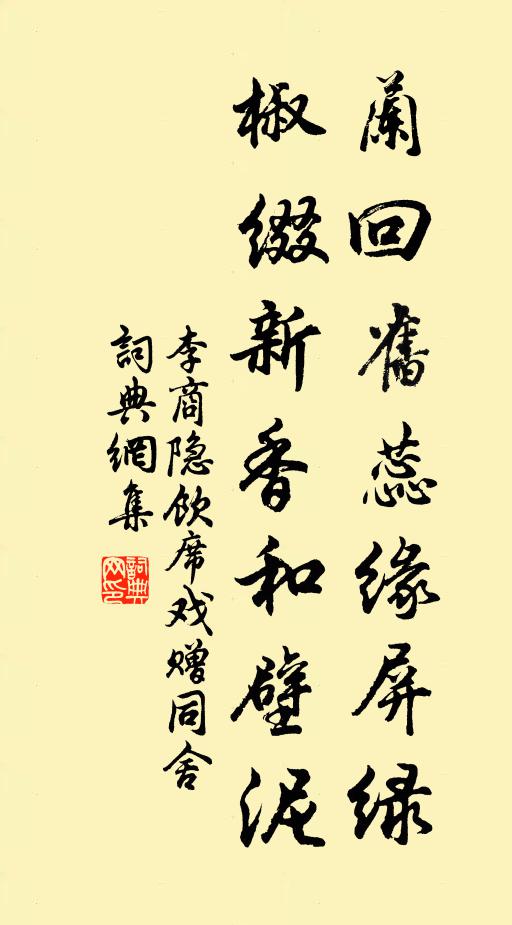 蘭回舊蕊緣屏綠
椒綴新香和壁泥
李商隐飲席戏赠同舍
詞典網集
詞典網印